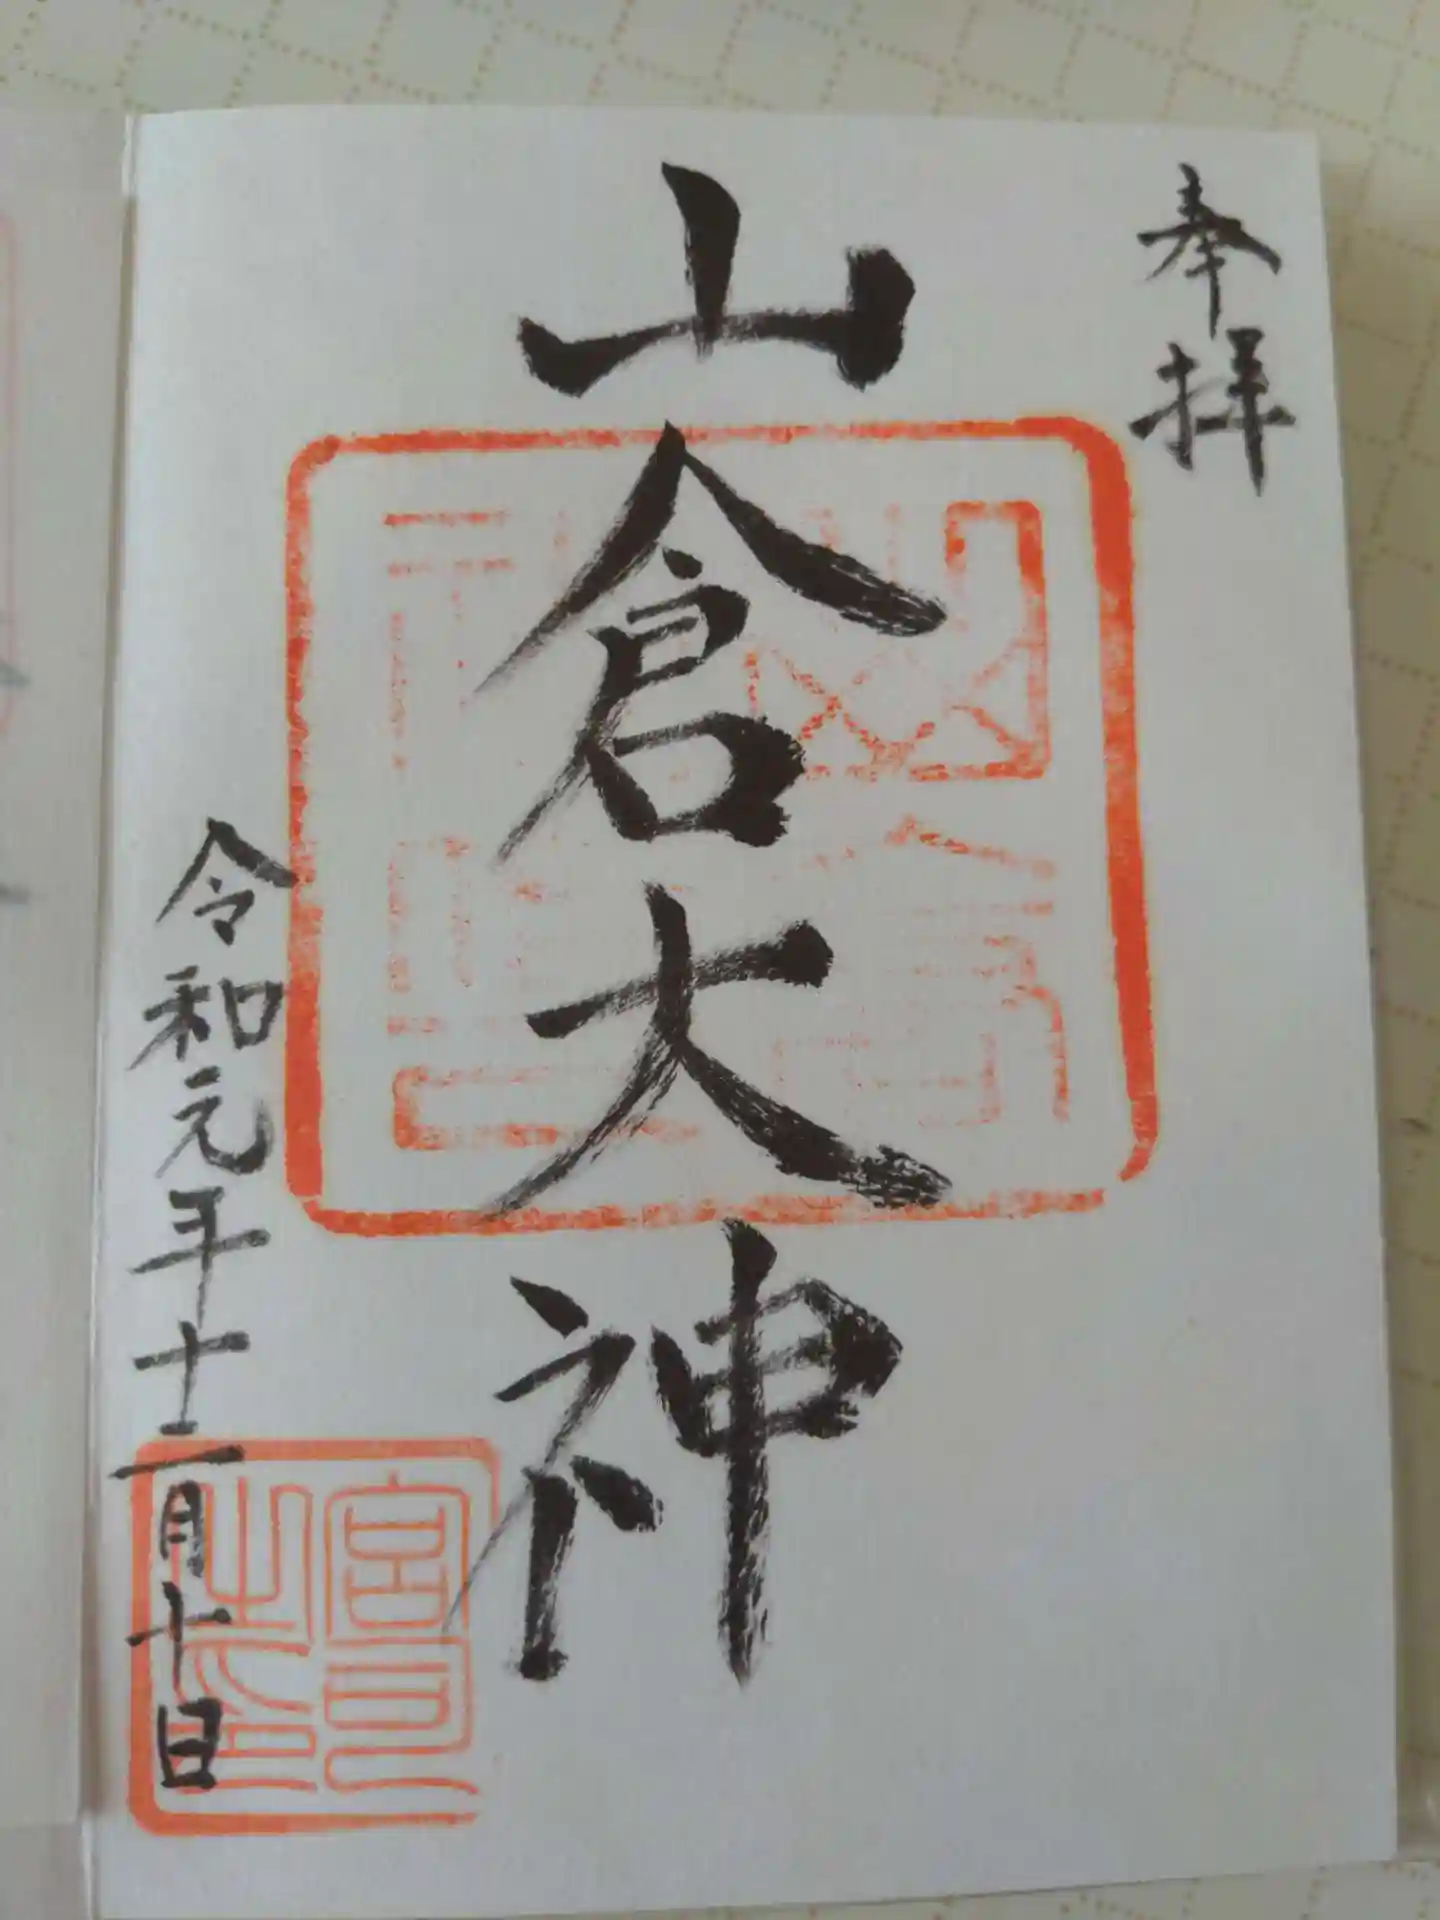 奉拝
山倉大神
令和元年十二月十日
宮司之印